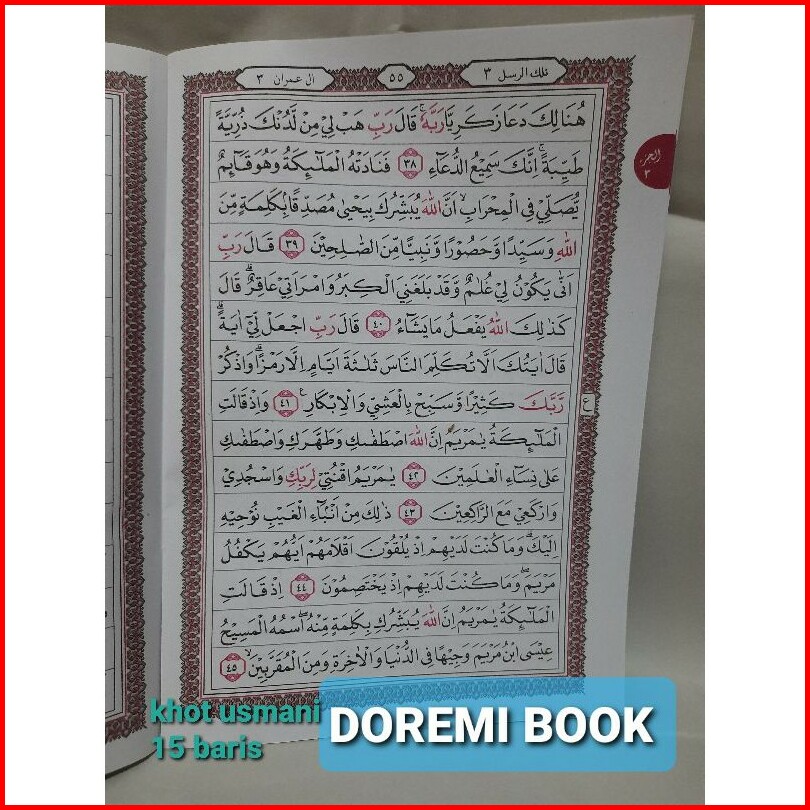 تلك الرسل ٣
٥٥
ال عمران ٣
هُنَالِكَ دَعَا زَكَرِيَّا رَبَّهٗۚ قَالَ رَبِّ هَبْ لِيْ مِنْ لَّدُنْكَ ذُرِّيَّةً
طَيِّبَةً ۚ اِنَّكَ سَمِيْعُ الدُّعَاۤءِ ٣٨ فَنَادَتْهُ الْمَلٰۤىِٕكَةُ وَهُوَ قَاۤىِٕمٌ
يُّصَلِّيْ فِى الْمِحْرَابِۙ اَنَّ اللّٰهَ يُبَشِّرُكَ بِيَحْيٰى مُصَدِّقًاۢ بِكَلِمَةٍ مِّنَ
اللّٰهِ وَسَيِّدًا وَّحَصُوْرًا وَّنَبِيًّا مِّنَ الصّٰلِحِيْنَ ٣٩ قَالَ رَبِّ
اَنّٰى يَكُوْنُ لِيْ غُلٰمٌ وَّقَدْ بَلَغَنِيَ الْكِبَرُ وَامْرَاَتِيْ عَاقِرٌ ۗ قَالَ
كَذٰلِكَ اللّٰهُ يَفْعَلُ مَا يَشَاۤءُ ٤٠ قَالَ رَبِّ اجْعَلْ لِّيْٓ اٰيَةً ۗ
قَالَ اٰيَتُكَ اَلَّا تُكَلِّمَ النَّاسَ ثَلٰثَةَ اَيَّامٍ اِلَّا رَمْزًا ۗ وَاذْكُرْ
رَّبَّكَ كَثِيْرًا وَّسَبِّحْ بِالْعَشِيِّ وَالْاِبْكَارِ ࣖ ٤١ وَاِذْ قَالَتِ
الْمَلٰۤىِٕكَةُ يٰمَرْيَمُ اِنَّ اللّٰهَ اصْطَفٰىكِ وَطَهَّرَكِ وَاصْطَفٰىكِ
عَلٰى نِسَاۤءِ الْعٰلَمِيْنَ ٤٢ يٰمَرْيَمُ اقْنُتِيْ لِرَبِّكِ وَاسْجُدِيْ
وَارْكَعِيْ مَعَ الرَّاكِعِيْنَ ٤٣ ذٰلِكَ مِنْ اَنْۢبَاۤءِ الْغَيْبِ نُوْحِيْهِ
اِلَيْكَ ۗ وَمَا كُنْتَ لَدَيْهِمْ اِذْ يُلْقُوْنَ اَقْلَامَهُمْ اَيُّهُمْ يَكْفُلُ
مَرْيَمَۖ وَمَا كُنْتَ لَدَيْهِمْ اِذْ يَخْتَصِمُوْنَ ٤٤ اِذْ قَالَتِ
الْمَلٰۤىِٕكَةُ يٰمَرْيَمُ اِنَّ اللّٰهَ يُبَشِّرُكِ بِكَلِمَةٍ مِّنْهُۖ اسْمُهُ الْمَسِيْحُ
عِيْسَى ابْنُ مَرْيَمَ وَجِيْهًا فِى الدُّنْيَا وَالْاٰخِرَةِ وَمِنَ الْمُقَرَّبِيْنَۙ ٤٥
الجزء
٣
ع
khot usmani
15 baris
DOREMI BOOK